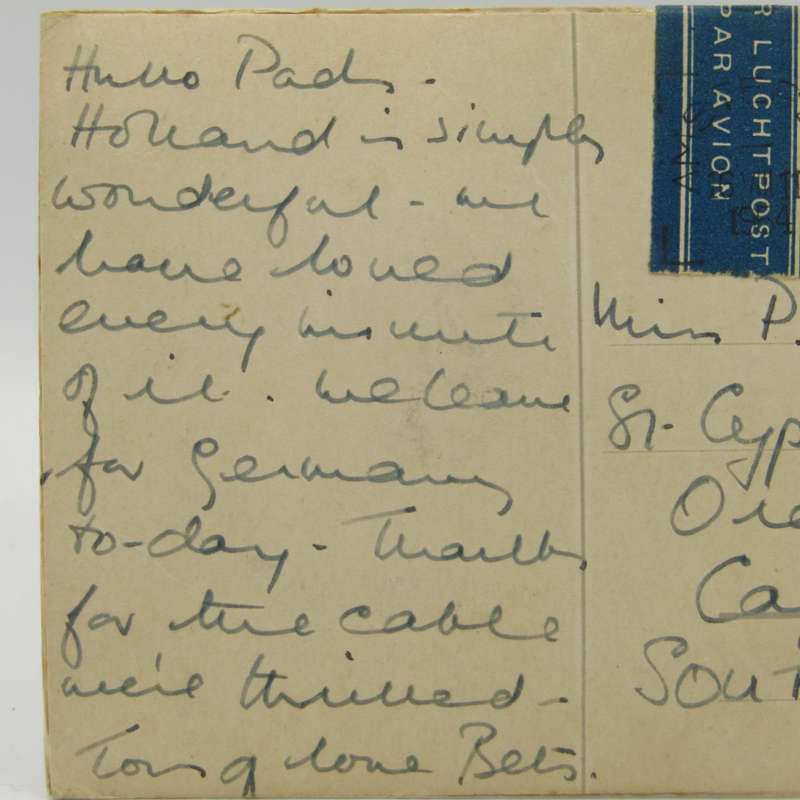 Hullo Pads -
Holland is simply
wonderful - we
have loved
every minute
of it. We leave
for Germany
to-day - Thanks
for the cable
we're thrilled -
Tons of love Bets.
R LUCHTPOST
PAR AVION
Miss P.
St. Cyp
Ore
Ca
SOUT